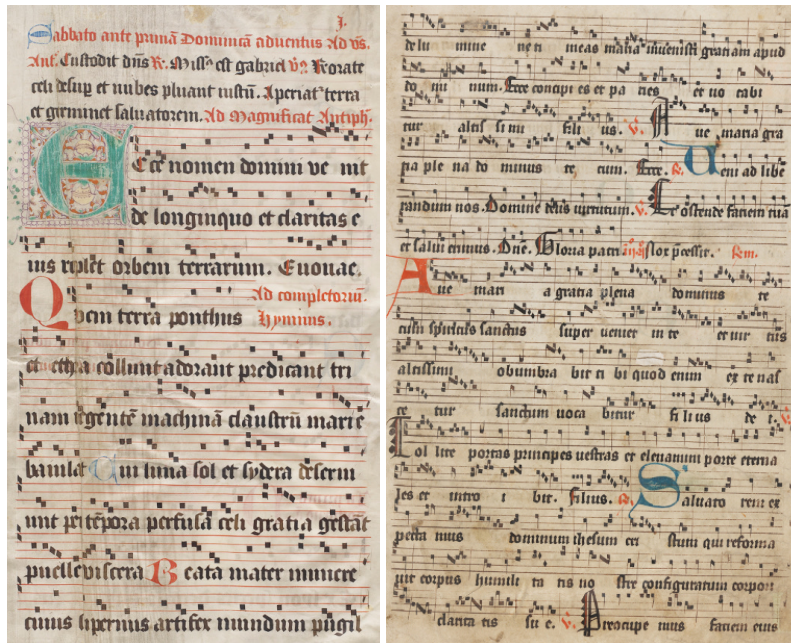 j.
Sabbato ante primā Dominicā aduentus Ad vs̄.
Ant̄. Custodit dn̄s R̄. Miss⁹ est gabriel v̄. Rorate
celi desup et nubes pluant iustū. Aperiat̄ terra
et germinet saluatorem. Ad Magnificat Antiph̄.
Ecce nomen domini ve nit
de longinquo et claritas e
ius replet orbem terrarum. Euouae.
Ad completoriū.
Quem terra ponthus Hymnus.
et ethra collunt adorant predicant tri
nam regentē machinā claustrū marie
baiulat Cui luna sol et sydera deserui
unt per tēpora perfusā celi gratia gestāt
puelle viscera Beata mater munere
cuius supernus artifex mundum pugil
de lu mine ne ti meas maria inuenisti gratiam apud
do mi num. Ecce concipi es et pa ries et uo cabi
tur altis si mi fili us. v̄. Aue maria gra
tia ple na do minus te cum. Ecce. R̄. Ueni ad libe
randum nos. Domine deus uirtutum. v̄. Et ostende faciem tuā
et salui erimus. Dn̄e. Gloria patri
Aue mari a gratia plena dominus te
cum spiritus sanctus super ueniet in te et uir tus
altissimi obumbra bit ti bi quod enim ex te nas
ce tur sanctum uoca bitur fi li us de i. v̄.
Tol lite portas principes uestras et eleuamini porte eterna
les et intro i bit. filius. R̄. Saluato rem ex
pecta mus dominum ihesum cri stum qui reforma
uit corpus humili ta tis no stre configuratum corpori
clarita tis su e. v̄. Preocupe mus faciem eius